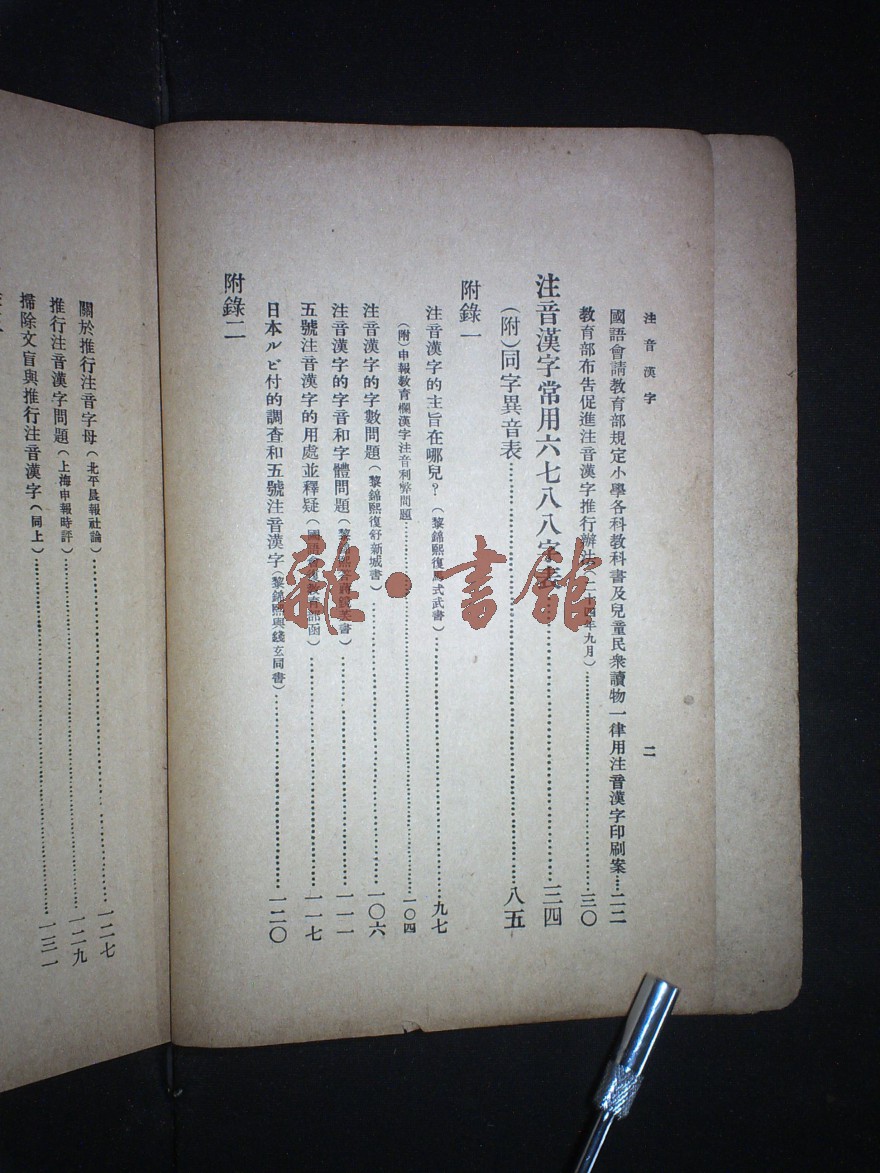 注音漢字 二
國語會請教育部規定小學各科教科書及兒童民衆讀物一律用注音漢字印刷案……二二
教育部布告促進注音漢字推行辦法(二十四年九月)……三〇
注音漢字常用六七八八字表……三四
(附)同字異音表……八五
附錄一
注音漢字的主旨在哪兒?(黎錦熙復馬式武書)……九七
(附)申報教育欄漢字注音利弊問題……一〇四
注音漢字的字數問題(黎錦熙復舒新城書)……一〇六
注音漢字的字音和字體問題(黎錦熙書)……一一一
五號注音漢字的用處並釋疑(國語會復教育部函)……一一七
日本ルビ付的調查和五號注音漢字(黎錦熙與錢玄同書)……一二〇
附錄二
關於推行注音字母(北平晨報社論)……一二七
推行注音漢字問題(上海申報時評)……一二九
掃除文盲與推行注音漢字(同上)……一三一
雜·書館